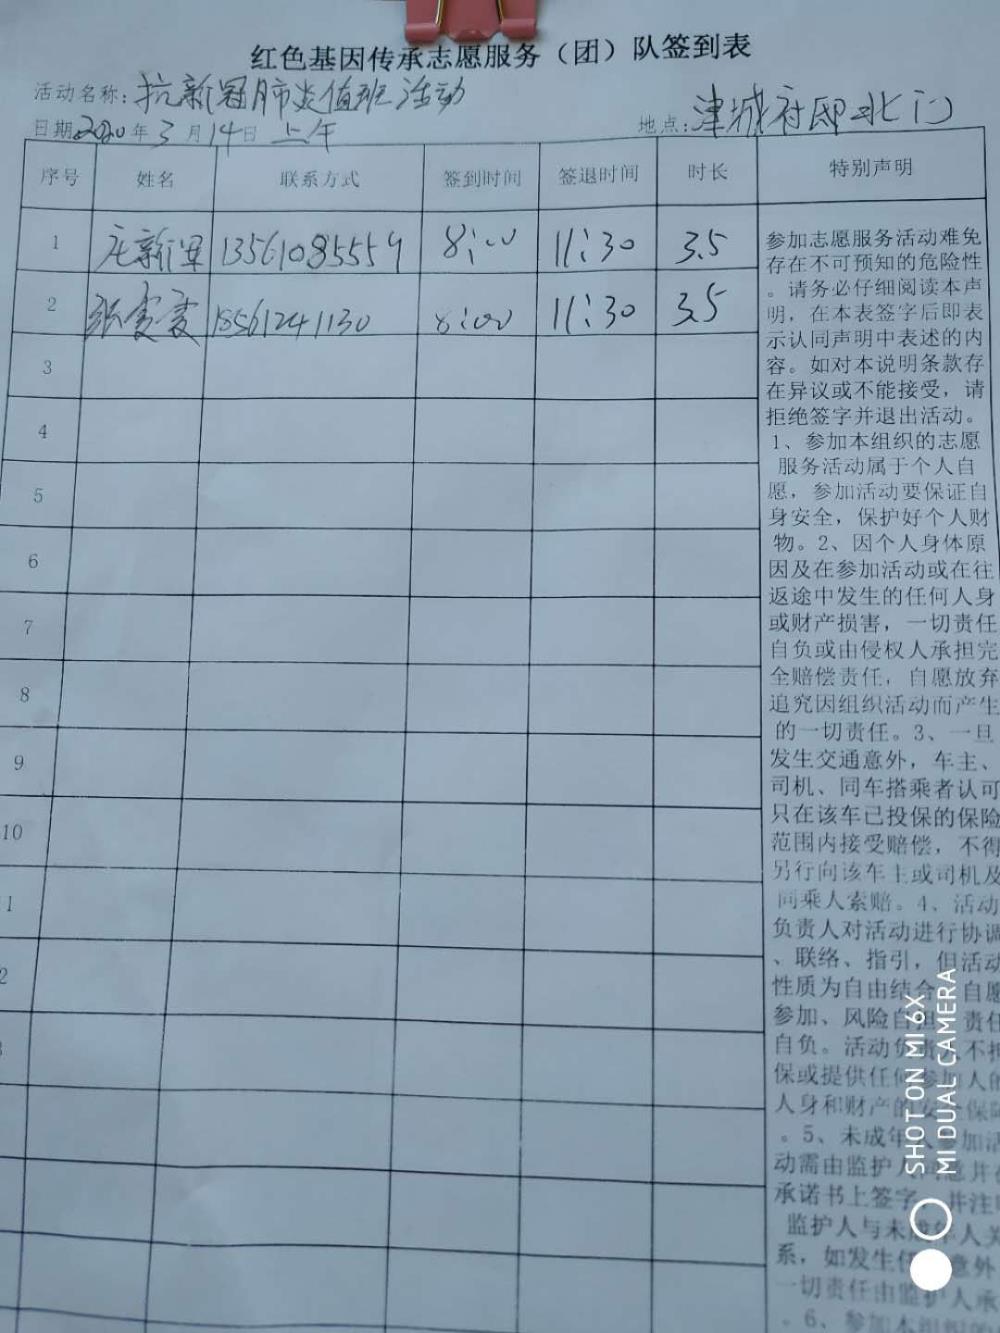 红色基因传承志愿服务（团）队签到表
活动名称：抗新冠肺炎值班活动
日期2020年3月14日 上午 地点：津城府邸北门
序号 姓名 联系方式 签到时间 签退时间 时长 特别声明
1 新军 13561085559 8:00 11:30 3.5
2 张雯雯 18561241130 8:00 11:30 3.5
3
4
5
6
7
8
9
10
1
2
3
参加志愿服务活动难免
存在不可预知的危险性
。请务必仔细阅读本声
明，在本表签字后即表
示认同声明中表述的内
容。如对本说明条款存
在异议或不能接受，请
拒绝签字并退出活动。
1、参加本组织的志愿
服务活动属于个人自
愿，参加活动要保证自
身安全，保护好个人财
物。2、因个人身体原
因及在参加活动或在往
返途中发生的任何人身
或财产损害，一切责任
自负或由侵权人承担完
全赔偿责任，自愿放弃
追究因组织活动而产生
的一切责任。3、一旦
发生交通意外，车主、
司机、同车搭乘者认可
只在该车已投保的保险
范围内接受赔偿，不得
另行向该车主或司机及
同乘人索赔。4、活动
负责人对活动进行协调
、联络、指引，但活动
性质为自由结合 自愿
参加、风险自担 责任
自负。活动负责 不担
保或提供任何参加人的
人身和财产的安全保障
。5、未成年人参加活
动需由监护人同意并在
承诺书上签字 并注明
监护人与未成年人关
系，如发生任 意外
一切责任由监护人承
。6、参加本组织的
SHOT ON MI 6X
MI DUAL CAMERA